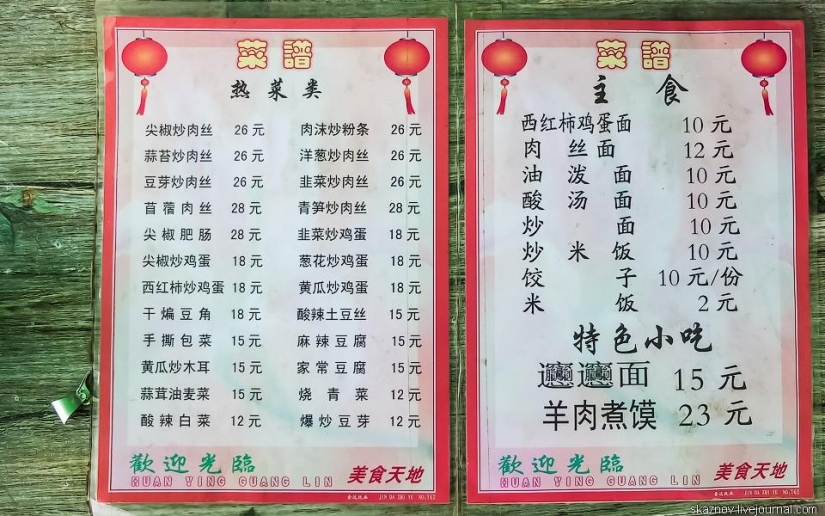 菜譜
热菜类
尖椒炒肉丝 26元 肉沫炒粉条 26元
蒜苔炒肉丝 26元 洋葱炒肉丝 26元
豆芽炒肉丝 26元 韭菜炒肉丝 26元
苜蓿肉丝 28元 青笋炒肉丝 28元
尖椒肥肠 28元 韭菜炒鸡蛋 18元
尖椒炒鸡蛋 18元 葱花炒鸡蛋 18元
西红柿炒鸡蛋 18元 黄瓜炒鸡蛋 18元
干煸豆角 18元 酸辣土豆丝 15元
手撕包菜 15元 麻辣豆腐 15元
黄瓜炒木耳 15元 家常豆腐 15元
蒜茸油麦菜 15元 烧青菜 12元
酸辣白菜 12元 爆炒豆芽 12元
歡迎光臨
HUAN YING GUANG LIN
美食天地
菜譜
主食
西红柿鸡蛋面 10元
肉丝面 12元
油泼面 10元
酸汤面 10元
炒面 10元
炒米饭 10元
饺子 10元/份
米饭 2元
特色小吃
𰻝𰻝面 15元
羊肉煮馍 23元
歡迎光臨
HUAN YING GUANG LIN
美食天地
skaznov.livejournal.com